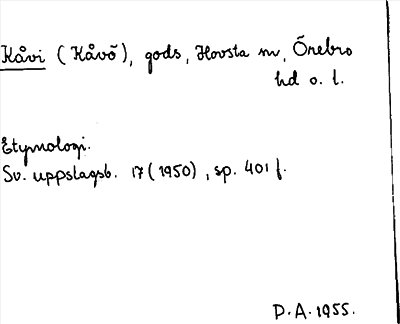 Kåvi (Kåvö), gods, Hovsta sn, Örebro
hd o. l.
Etymologi.
Sv. uppslagsb. 17 (1950), sp. 401 f.
D. A. 1955.